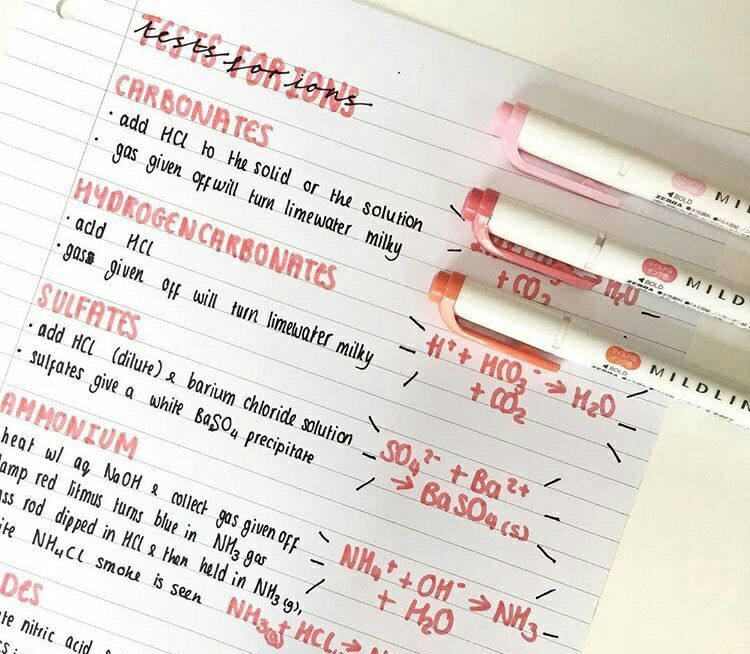 TESTS FOR IONS
tests for ions
CARBONATES
· add HCl to the solid or the solution
· gas given off will turn limewater milky
+ CO2 → H2O
HYDROGENCARBONATES
· add HCl
· gas given off will turn limewater milky
H+ + HCO3- → H2O
+ CO2
SULFATES
· add HCl (dilute) & barium chloride solution
· sulfates give a white BaSO4 precipitate
SO4 2- + Ba2+
→ BaSO4(s)
AMMONIUM
heat w/ aq NaOH & collect gas given off
amp red litmus turns blue in NH3 gas
ss rod dipped in HCl & then held in NH3(g),
ite NH4Cl smoke is seen
NH4+ + OH- → NH3
+ H2O
NH3(g) + HCl
DES
te nitric acid
BOLD
ZEBRA
MILD
BOLD
ZEBRA
MILDL
BOLD
ZEBRA
MILDLIN